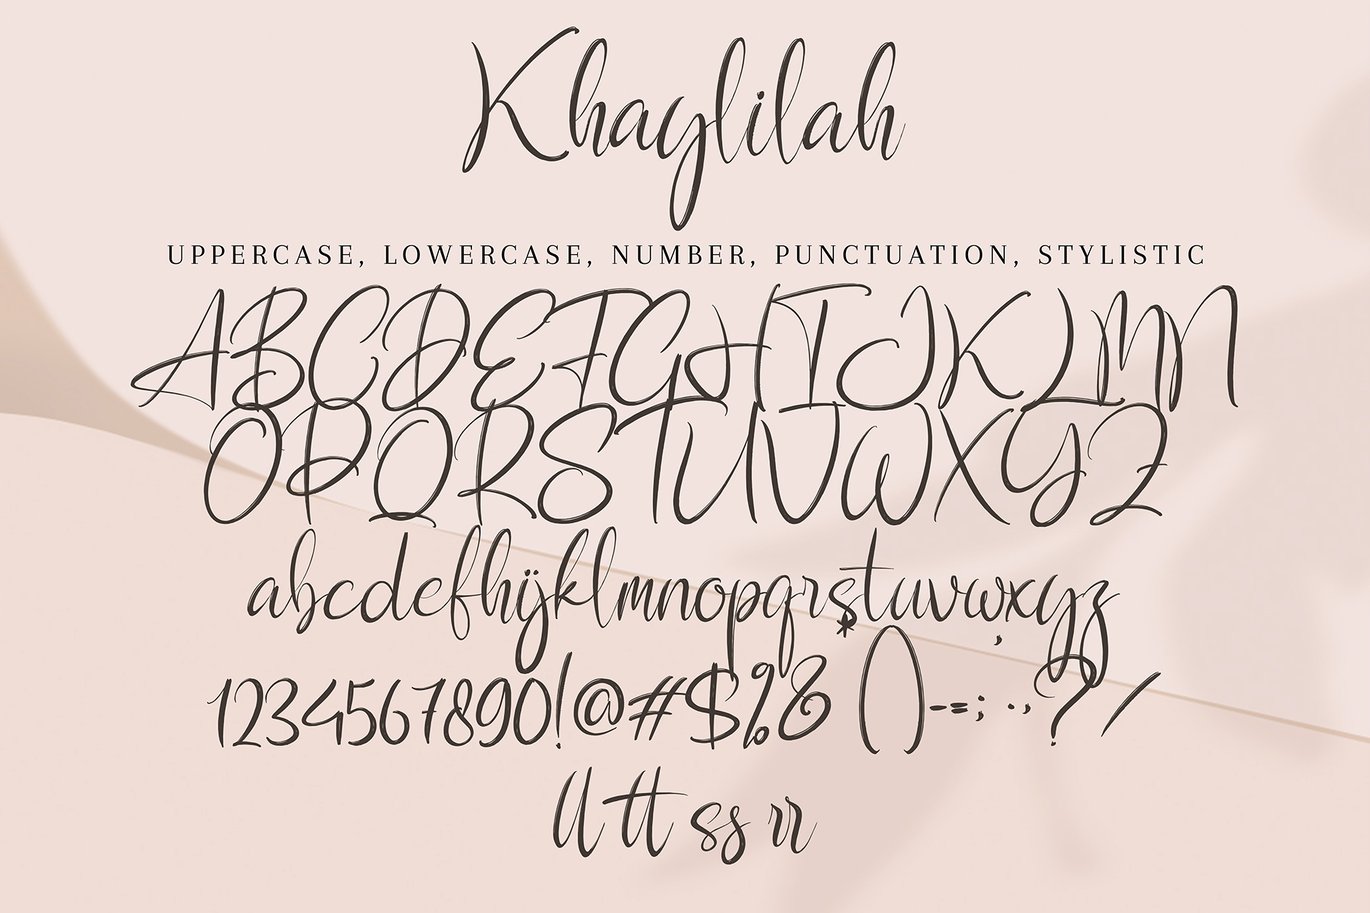 Khaylilah
UPPERCASE, LOWERCASE, NUMBER, PUNCTUATION, STYLISTIC
ABCDEFGHIJKLMN
OPQRSTUVWXYZ
abcdefghijklmnopqrstuvwxyz
1234567890!@#$%&*()-=;:.,?/
ll tt ss rr